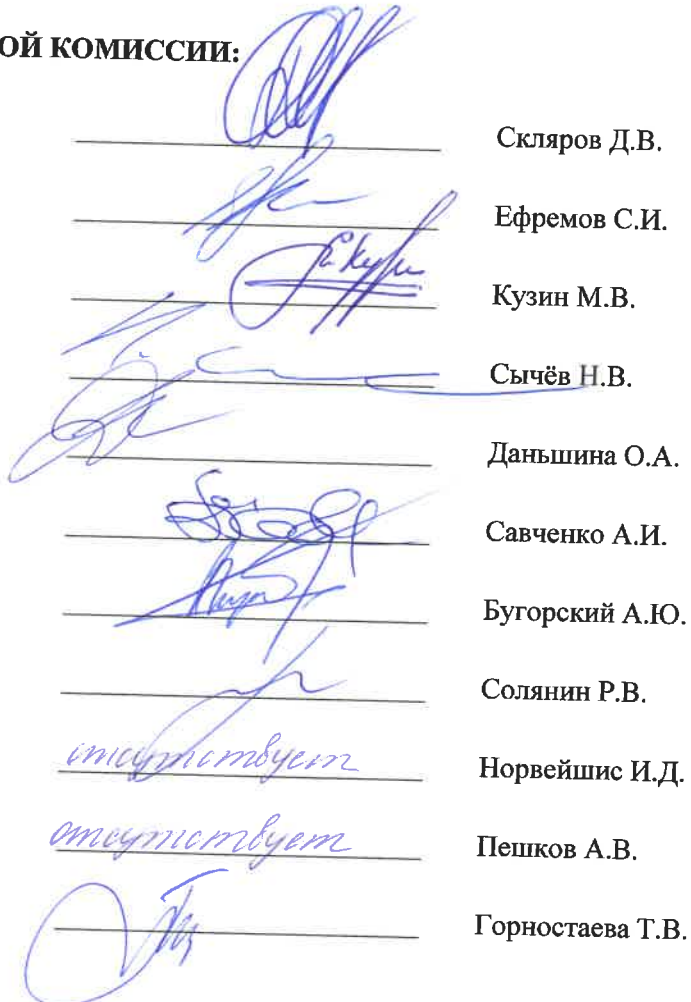 ОЙ КОМИССИИ:
Скляров Д.В.
Ефремов С.И.
Кузин М.В.
Сычёв Н.В.
Даньшина О.А.
Савченко А.И.
Бугорский А.Ю.
Солянин Р.В.
отсутствует Норвейшис И.Д.
отсутствует Пешков А.В.
Горностаева Т.В.